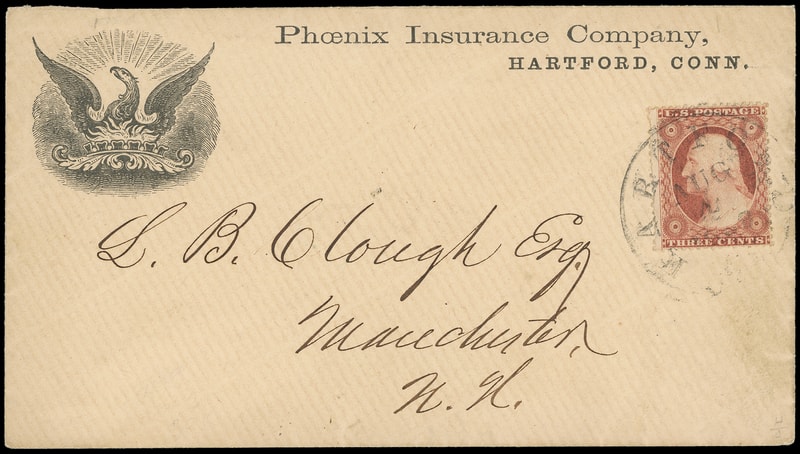 Phœnix Insurance Company,
HARTFORD, CONN.
U.S. POSTAGE
THREE CENTS
HARTFO
AUG
L. B. Clough Esq.
Manchester,
N. H.